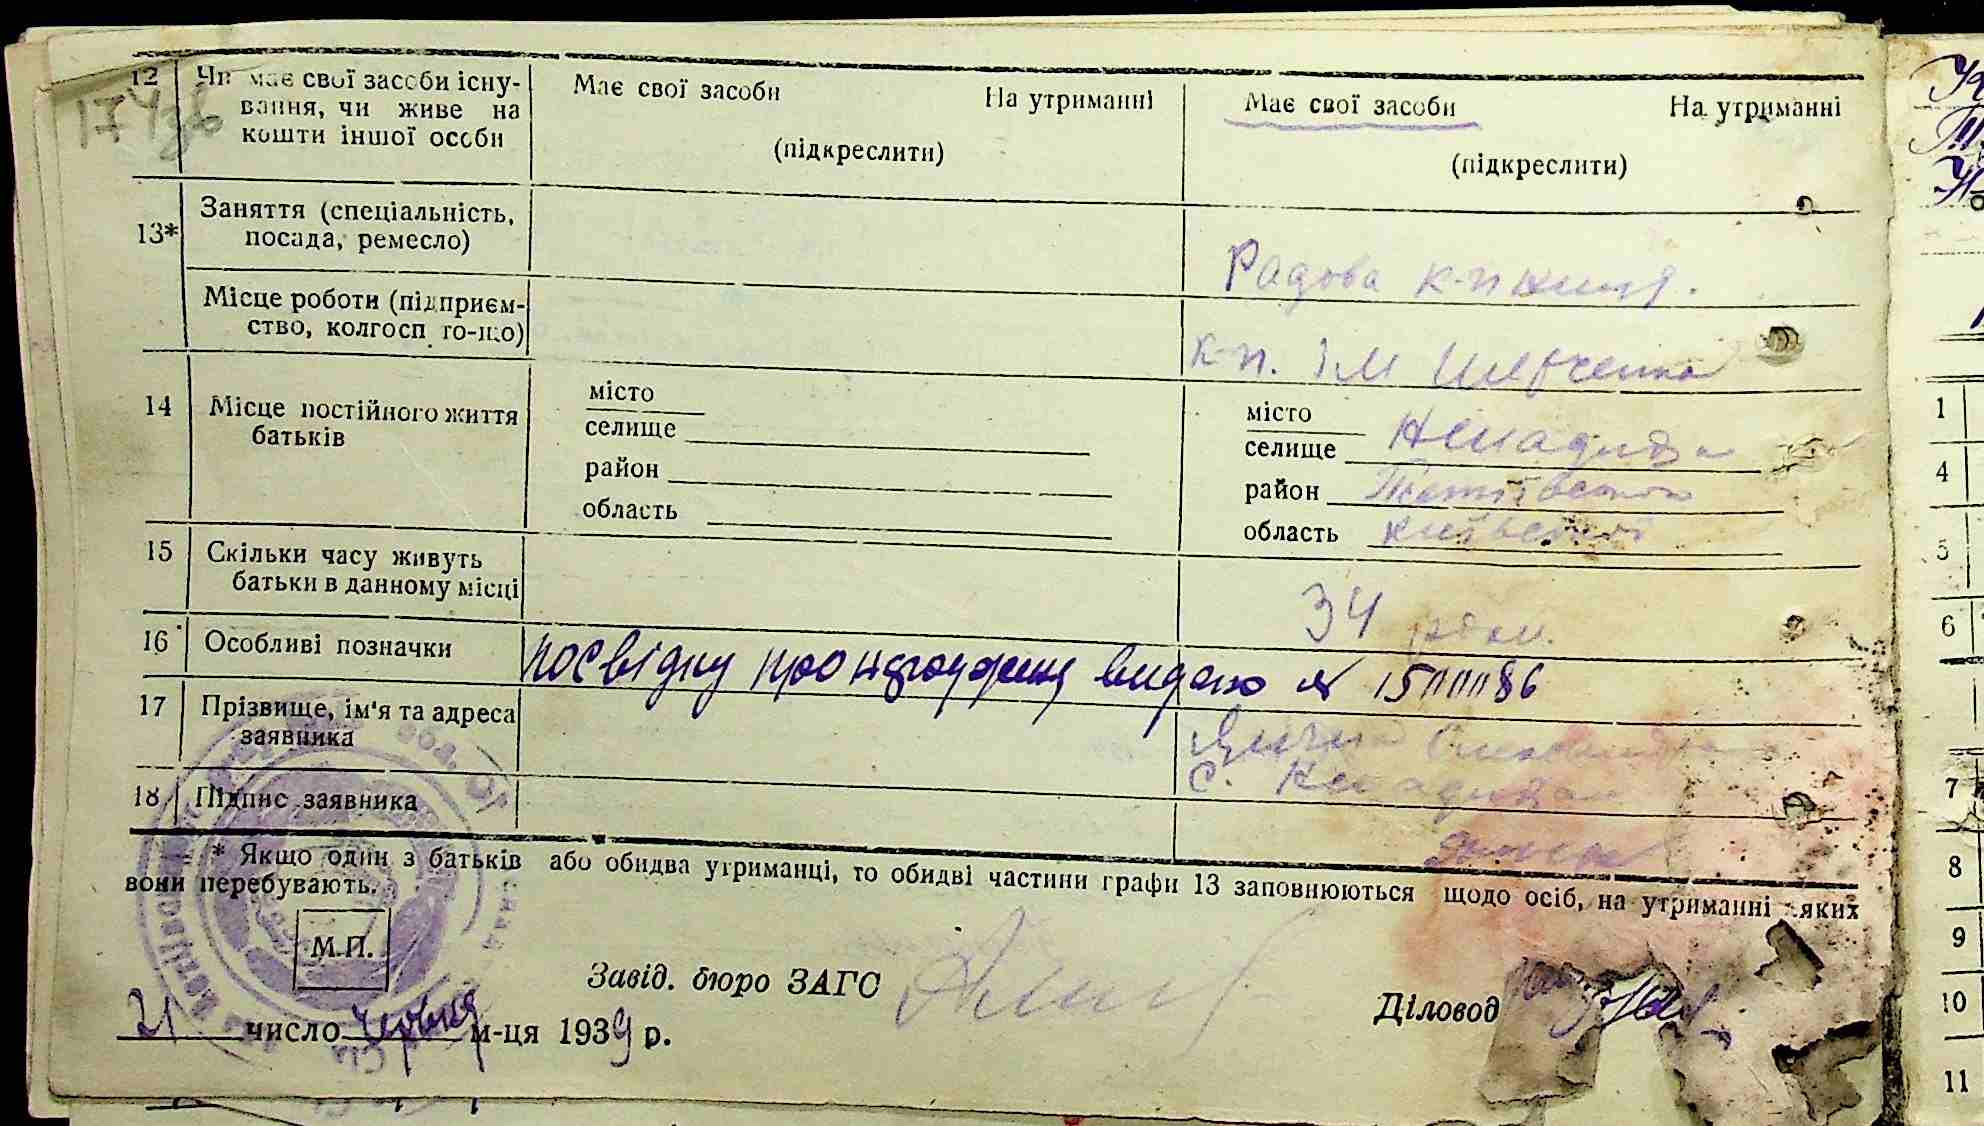 174зв
12 Чи має свої засоби існу-
вання, чи живе на
кошти іншої особи
Має свої засоби На утриманні
(підкреслити)
Має свої засоби На утриманні
(підкреслити)
13*
Заняття (спеціальність,
посада, ремесло)
Радова к-пниця.
Місце роботи (підприєм-
ство, колгосп то-що)
к-п. Ім Шевченка
14 Місце постійного життя
батьків
місто
селище
район
область
місто
селище Ненадиха
район Тетіївського
область Київської
15 Скільки часу живуть
батьки в данному місці
34 роки.
16 Особливі позначки
посвідку про народження видано №
17 Прізвище, ім'я та адреса
заявника
с. Ненадиха
18 Підпис заявника
* Якщо один з батьків або обидва утриманці, то обидві частини графи 13 заповнюються щодо осіб, на утриманні яких
вони перебувають.
М.П.
Завід. бюро ЗАГС
Діловод
21 число червня м-ця 1939 р.
1
4
5
6
7
8
9
10
11